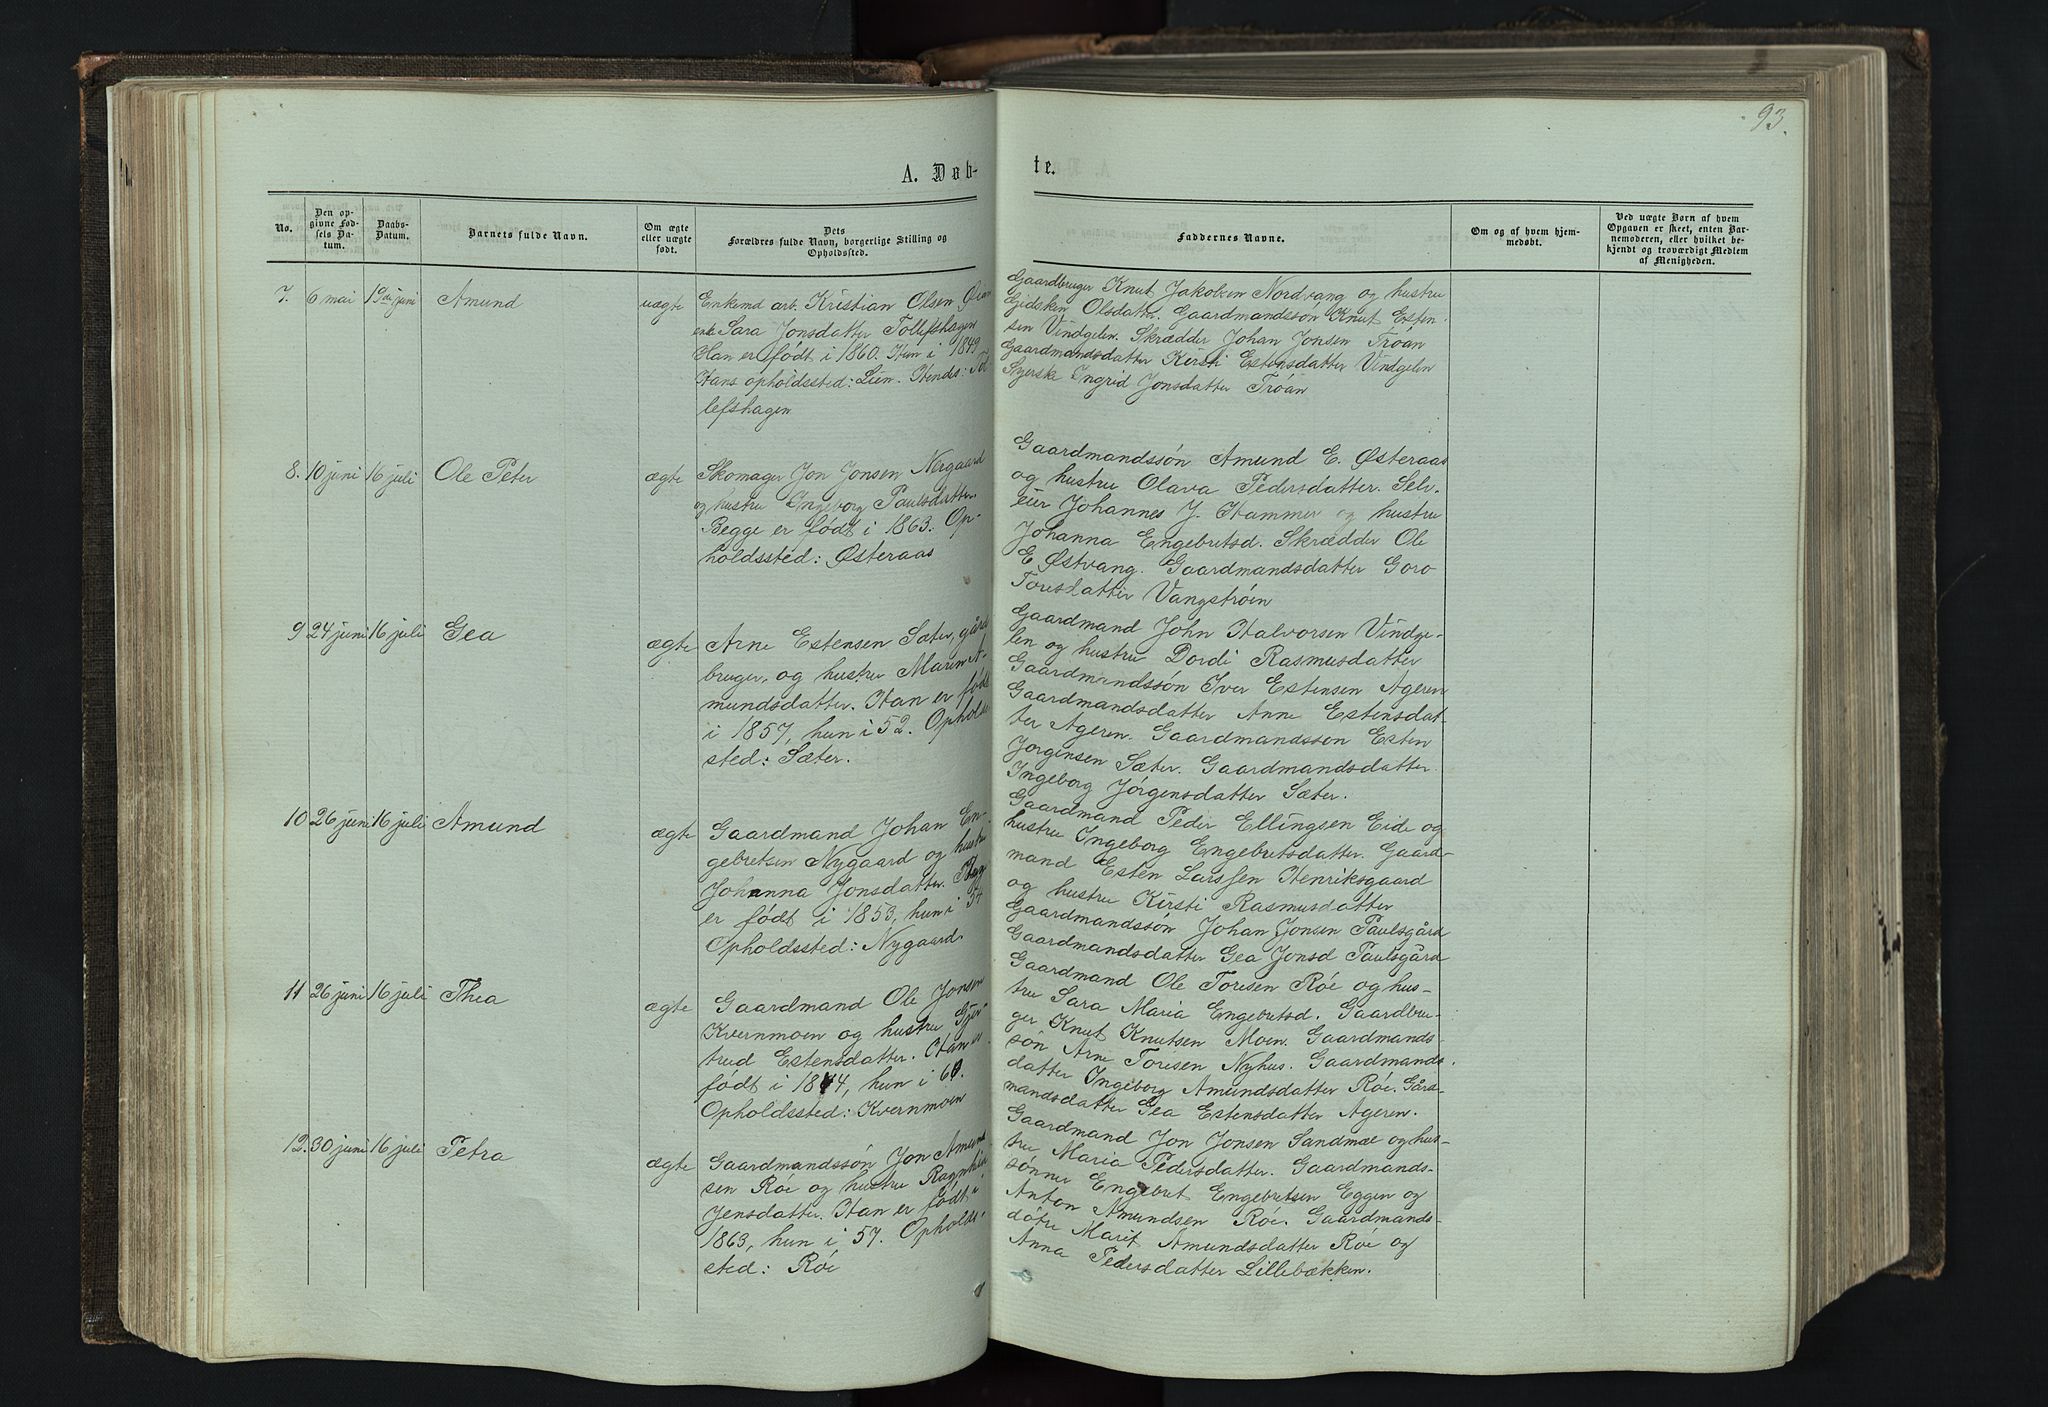 93.
A. Døb-
te.
No.
Den op-
givne Fød-
sels Da-
tum.
Daabs-
Datum.
Barnets fulde Navn.
Om ægte
eller uægte
født.
Dets
Forældres fulde Navn, borgerlige Stilling og
Opholdssted.
Faddernes Navne.
Om og af hvem hjem-
medøbt.
Ved uægte Børn af hvem
Opgaven er skeet, enten Bar-
nemoderen, eller hvilket be-
kjendt og troværdigt Medlem
af Menigheden.
7. 6 mai juni Amund uægte
Enkemd arb. Kristian Olsen
enke Sara Jonsdatter Tollefshagen
Han er født i 1860. Hun i 1849
Hans opholdssted: Lien. Hendes: Tol
lefshagen
Gaardbruger Knut Jakobsen Nordvang og hustru
Gidsken Olsdatter. Gaardmandssön Knut Esten-
sen Vindgelen. Skrædder Johan Jonsen Tröan
Gaardmandsdatter Kirsti Estensdatter Vindgelen
Syerske Ingrid Jonsdatter Tröan
8. 10 juni 16 juli Ole Peter ægte
Skomager Jon Jonsen Nergaard
og hustru Ingeborg Paulsdatter.
Begge er født i 1863. Op-
holdssted: Østeraas
Gaardmandssön Amund E. Østeraas
og hustru Olava Pedersdatter. Selv-
eier Johannes J. Hammer og hustru
Johanna Engebretsd. Skrædder Ole
E. Østvang. Gaardmandsdatter Goro
Toresdatter Vangströen
9 24 juni 16 juli Gea ægte
Arne Estensen Sæter, gård
bruger, og hustru Marin A-
mundsdatter. Han er født
i 1857, hun i 52. Opholds
sted: Sæter.
Gaardmand John Halvorsen Vindge-
len og hustru Dordi Rasmusdatter
Gaardmandssön Iver Estensen Ageren
Gaardmandsdatter Anne Estensdat-
ter Ageren. Gaardmandssøn Esten
Jorgensen Sæter. Gaardmandsdatter
Ingeborg Jörgensdatter Sæter.
10 26 juni 16 juli Amund ægte
Gaardmand Johan En-
gebretsen Nygaard og hustru
Johanna Jonsdatter.
er født i 1853, hun i 54
Opholdssted: Nygaard.
Gaardmand Peder Ellingsen Eide og
hustru Ingeborg Engebretsdatter. Gaard-
mand Esten Larssen Henriksgaard
og hustru Kirsti Rasmusdatter
Gaardmandssön Johan Jonsen Paulsgård
Gaardmandsdatter Gea Jonsd Paulsgård
11 26 juni 16 juli Thea ægte
Gaardmand Ole Jonsen
Kvernmoen og hustru Gjer-
trud Estensdatter. Han er
født i 1844, hun i 60.
Opholdssted: Kvernmoen
Gaardmand Ole Toresen Röe og hus-
tru Sara Maria Engebretsd. Gaardbru-
ger Knut Knutsen Moen. Gaardmands-
sön Arne Toresen Nyhus. Gaardmands-
datter Ingeborg Amundsdatter Röe. Gård-
mandsdatter Gea Estensdatter Ageren.
12. 30 juni 16 juli Petra ægte
Gaardmandssön Jon Amund
sen Röe og hustru Ragnhild
Jensdatter. Han er født i
1863, hun i 57. Opholds-
sted: Röe
Gaardmand Jon Jonsen Sandmæl og hus-
tru Maria Pedersdatter. Gaardmands-
sönner Engebret Engebretsen Eggen og
Anton Amundsen Röe. Gaardmands-
dötre Marit Amundsdatter Röe og
Anna Pedersdatter Lillebækken.